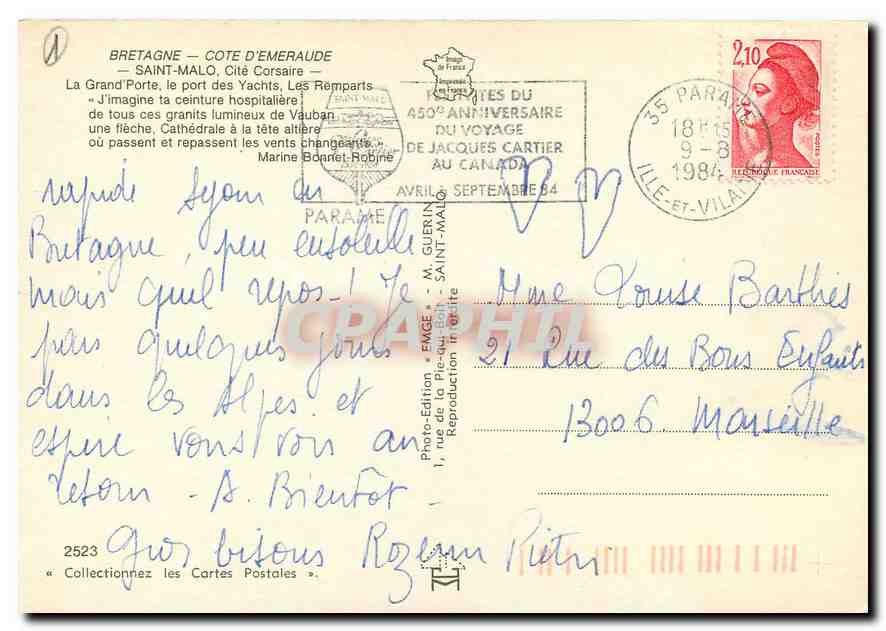 1
BRETAGNE — COTE D'EMERAUDE
— SAINT-MALO, Cité Corsaire —
La Grand'Porte, le port des Yachts, Les Remparts
« J'imagine ta ceinture hospitalière
de tous ces granits lumineux de Vauban
une flèche, Cathédrale à la tête altière
où passent et repassent les vents changeants. »
Marine Bonnet-Robine
Image
de France
Imprimée
en France
SAINT-MALO
PARAME
450e ANNIVERSAIRE
DU VOYAGE
DE JACQUES CARTIER
AU CANADA
AVRIL - SEPTEMBRE 84
35 PARAME
18H15
9-8
1984
ILLE-ET-VILAINE
2,10
POSTES
REPUBLIQUE FRANÇAISE
rapide séjour en
Bretagne, peu ensoleillé
mais quel repos-! Je
pars quelques jours
dans les Alpes. et
espère vous voir au
retour - A. Bientôt -
Gros bisous Rozenn Pietri
Photo-Edition « EMGE » - M. GUERIN
1, rue de la Pie-qui-Boit - SAINT-MALO
Reproduction interdite
Mme Louise Barthès
21 Rue des Bons Enfants
13006. Marseille
CPAPHIL
2523
« Collectionnez les Cartes Postales ».